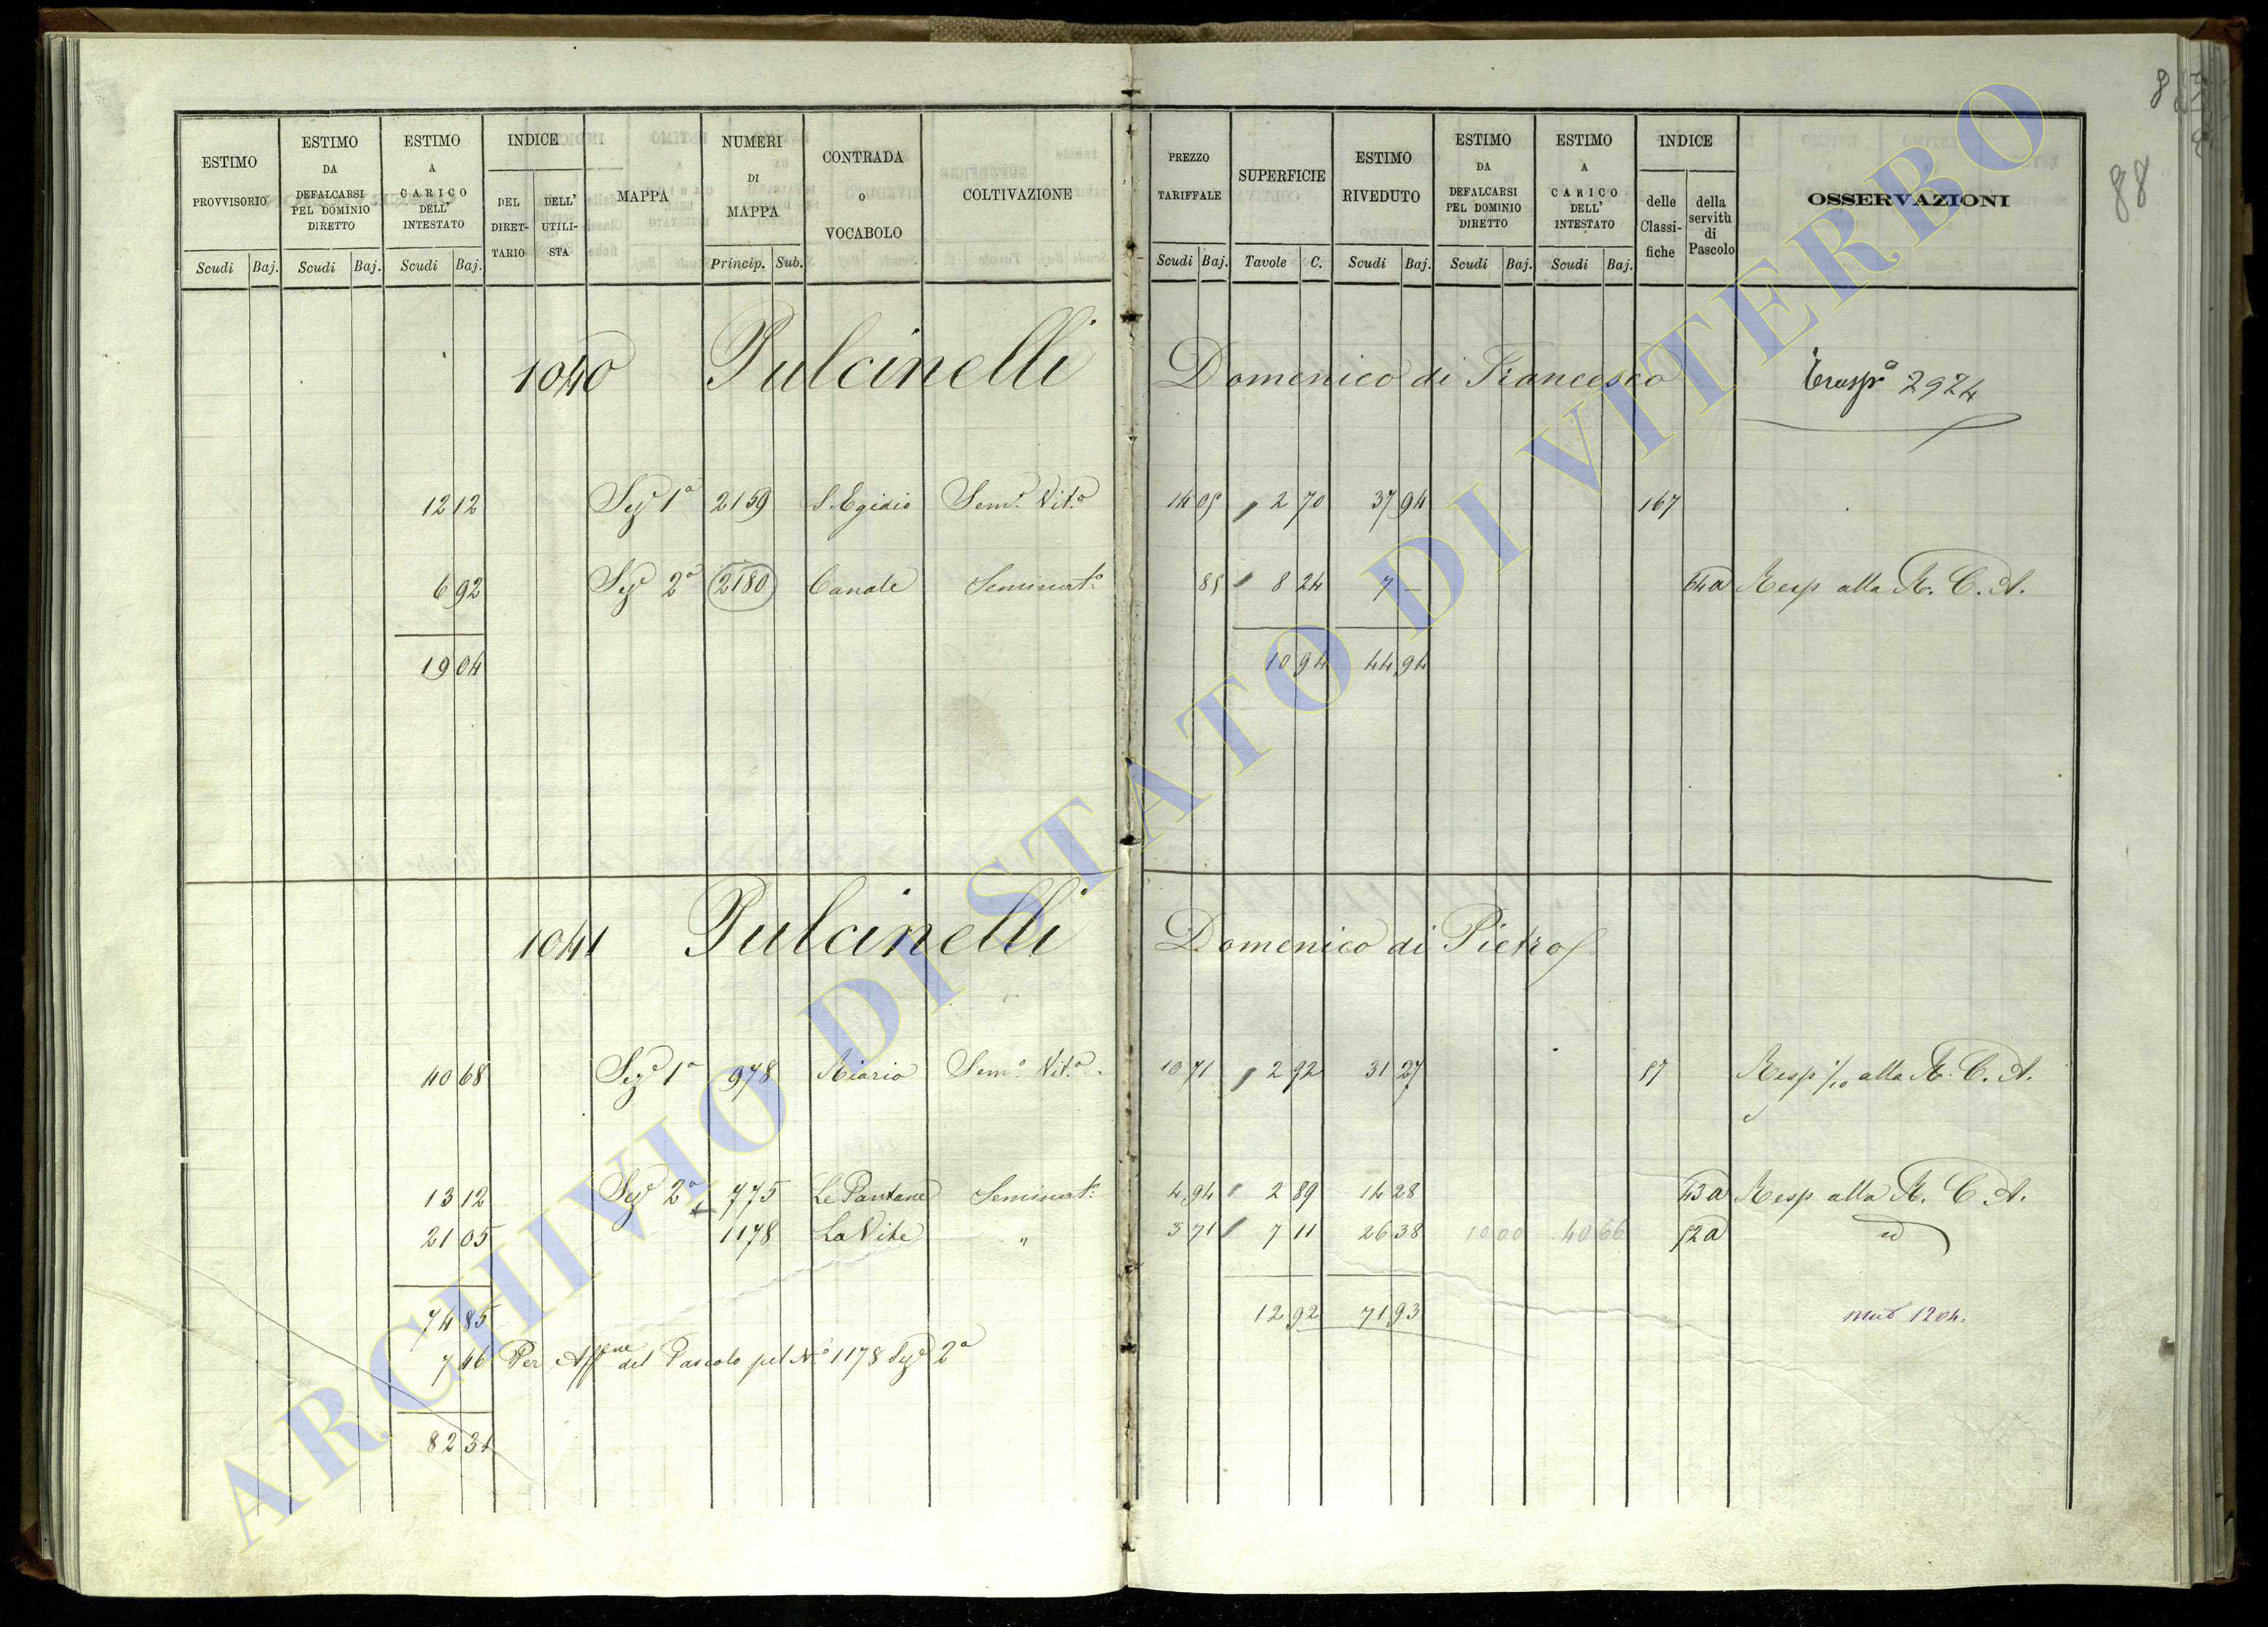 88
ESTIMO PROVVISORIO
ESTIMO DA DEFALCARSI PEL DOMINIO DIRETTO
ESTIMO A CARICO DELL' INTESTATO
INDICE
DEL DIRET-TARIO
DELL' UTILI-STA
MAPPA
NUMERI DI MAPPA
CONTRADA o VOCABOLO
COLTIVAZIONE
PREZZO TARIFFALE
SUPERFICIE
ESTIMO RIVEDUTO
ESTIMO DA DEFALCARSI PEL DOMINIO DIRETTO
ESTIMO A CARICO DELL' INTESTATO
INDICE
delle Classi-fiche
della servitù di Pascolo
OSSERVAZIONI
Scudi Baj. Scudi Baj. Scudi Baj. Princip. Sub. Scudi Baj. Tavole C. Scudi Baj. Scudi Baj. Scudi Baj.
1040 Pulcinelli Domenico di Francesco Trasp.o 2924
12 12 Sez.e 1a 2159 S. Egidio Sem.o Vit.o 14 05 2 70 37 94 167
6 92 Sez.e 2a 2180 Canale Seminat.o 85 8 24 7 — 64a Resp alla R. C. A.
19 04 10 94 44 94
1041 Pulcinelli Domenico di Pietro
40 68 Sez.e 1a 978 Riario Sem.o Vit.o 10 71 2 92 31 27 87 Resp 1/10 alla R. C. A.
13 12 Sez.e 2a 775 Le Pantane Seminat.o 4 94 2 89 14 28 43a Resp alla R. C. A.
21 05 1178 La Vite " 3 71 7 11 26 38 10 00 40 66 52a id
74 85 12 92 71 93 mut 1204.
7 46 Per Aff.ne del Pascolo pel N.o 1178 Sez.e 2a
82 31
ARCHIVIO DI STATO DI VITERBO